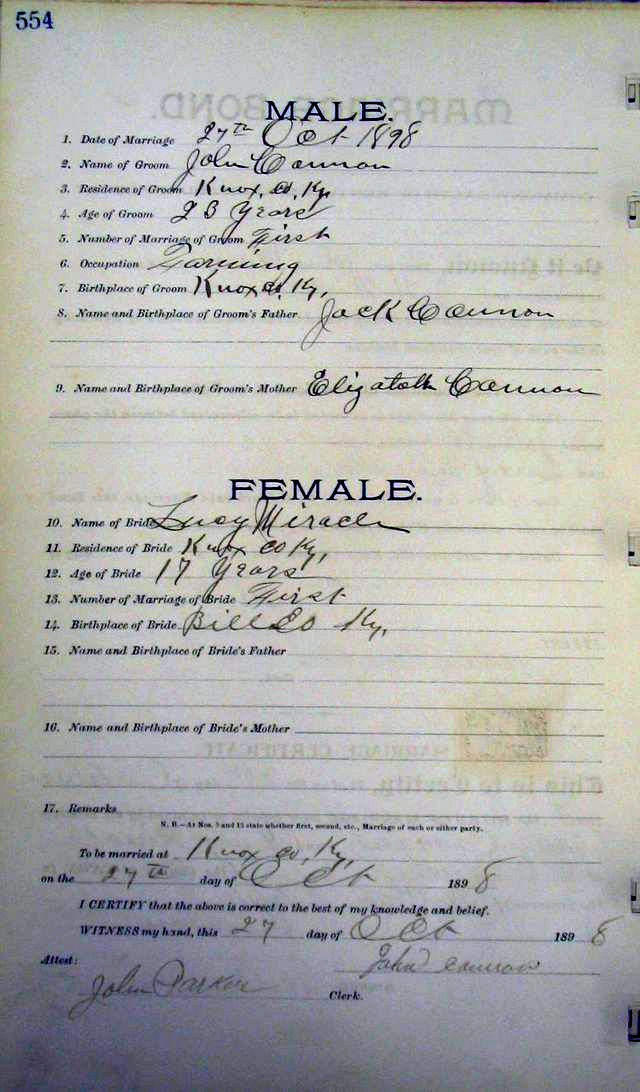 554
MALE.
1. Date of Marriage 27th Oct 1898
2. Name of Groom John Cannon
3. Residence of Groom Knox, Co, Ky,
4. Age of Groom 23 Years
5. Number of Marriage of Groom First
6. Occupation Farming
7. Birthplace of Groom Knox Co, Ky,
8. Name and Birthplace of Groom's Father Jack Cannon
9. Name and Birthplace of Groom's Mother Elizabeth Cannon
FEMALE.
10. Name of Bride Lucy Miracle
11. Residence of Bride Knox Co Ky,
12. Age of Bride 17 Years
13. Number of Marriage of Bride First
14. Birthplace of Bride Bell Co Ky,
15. Name and Birthplace of Bride's Father
16. Name and Birthplace of Bride's Mother
17. Remarks
N. B.—At Nos. 5 and 13 state whether first, second, etc., Marriage of each or either party.
To be married at Knox Co, Ky,
on the 27th day of Oct 1898
I CERTIFY that the above is correct to the best of my knowledge and belief.
WITNESS my hand, this 27 day of Oct 1898
Attest: John Cannon
John Parker Clerk.